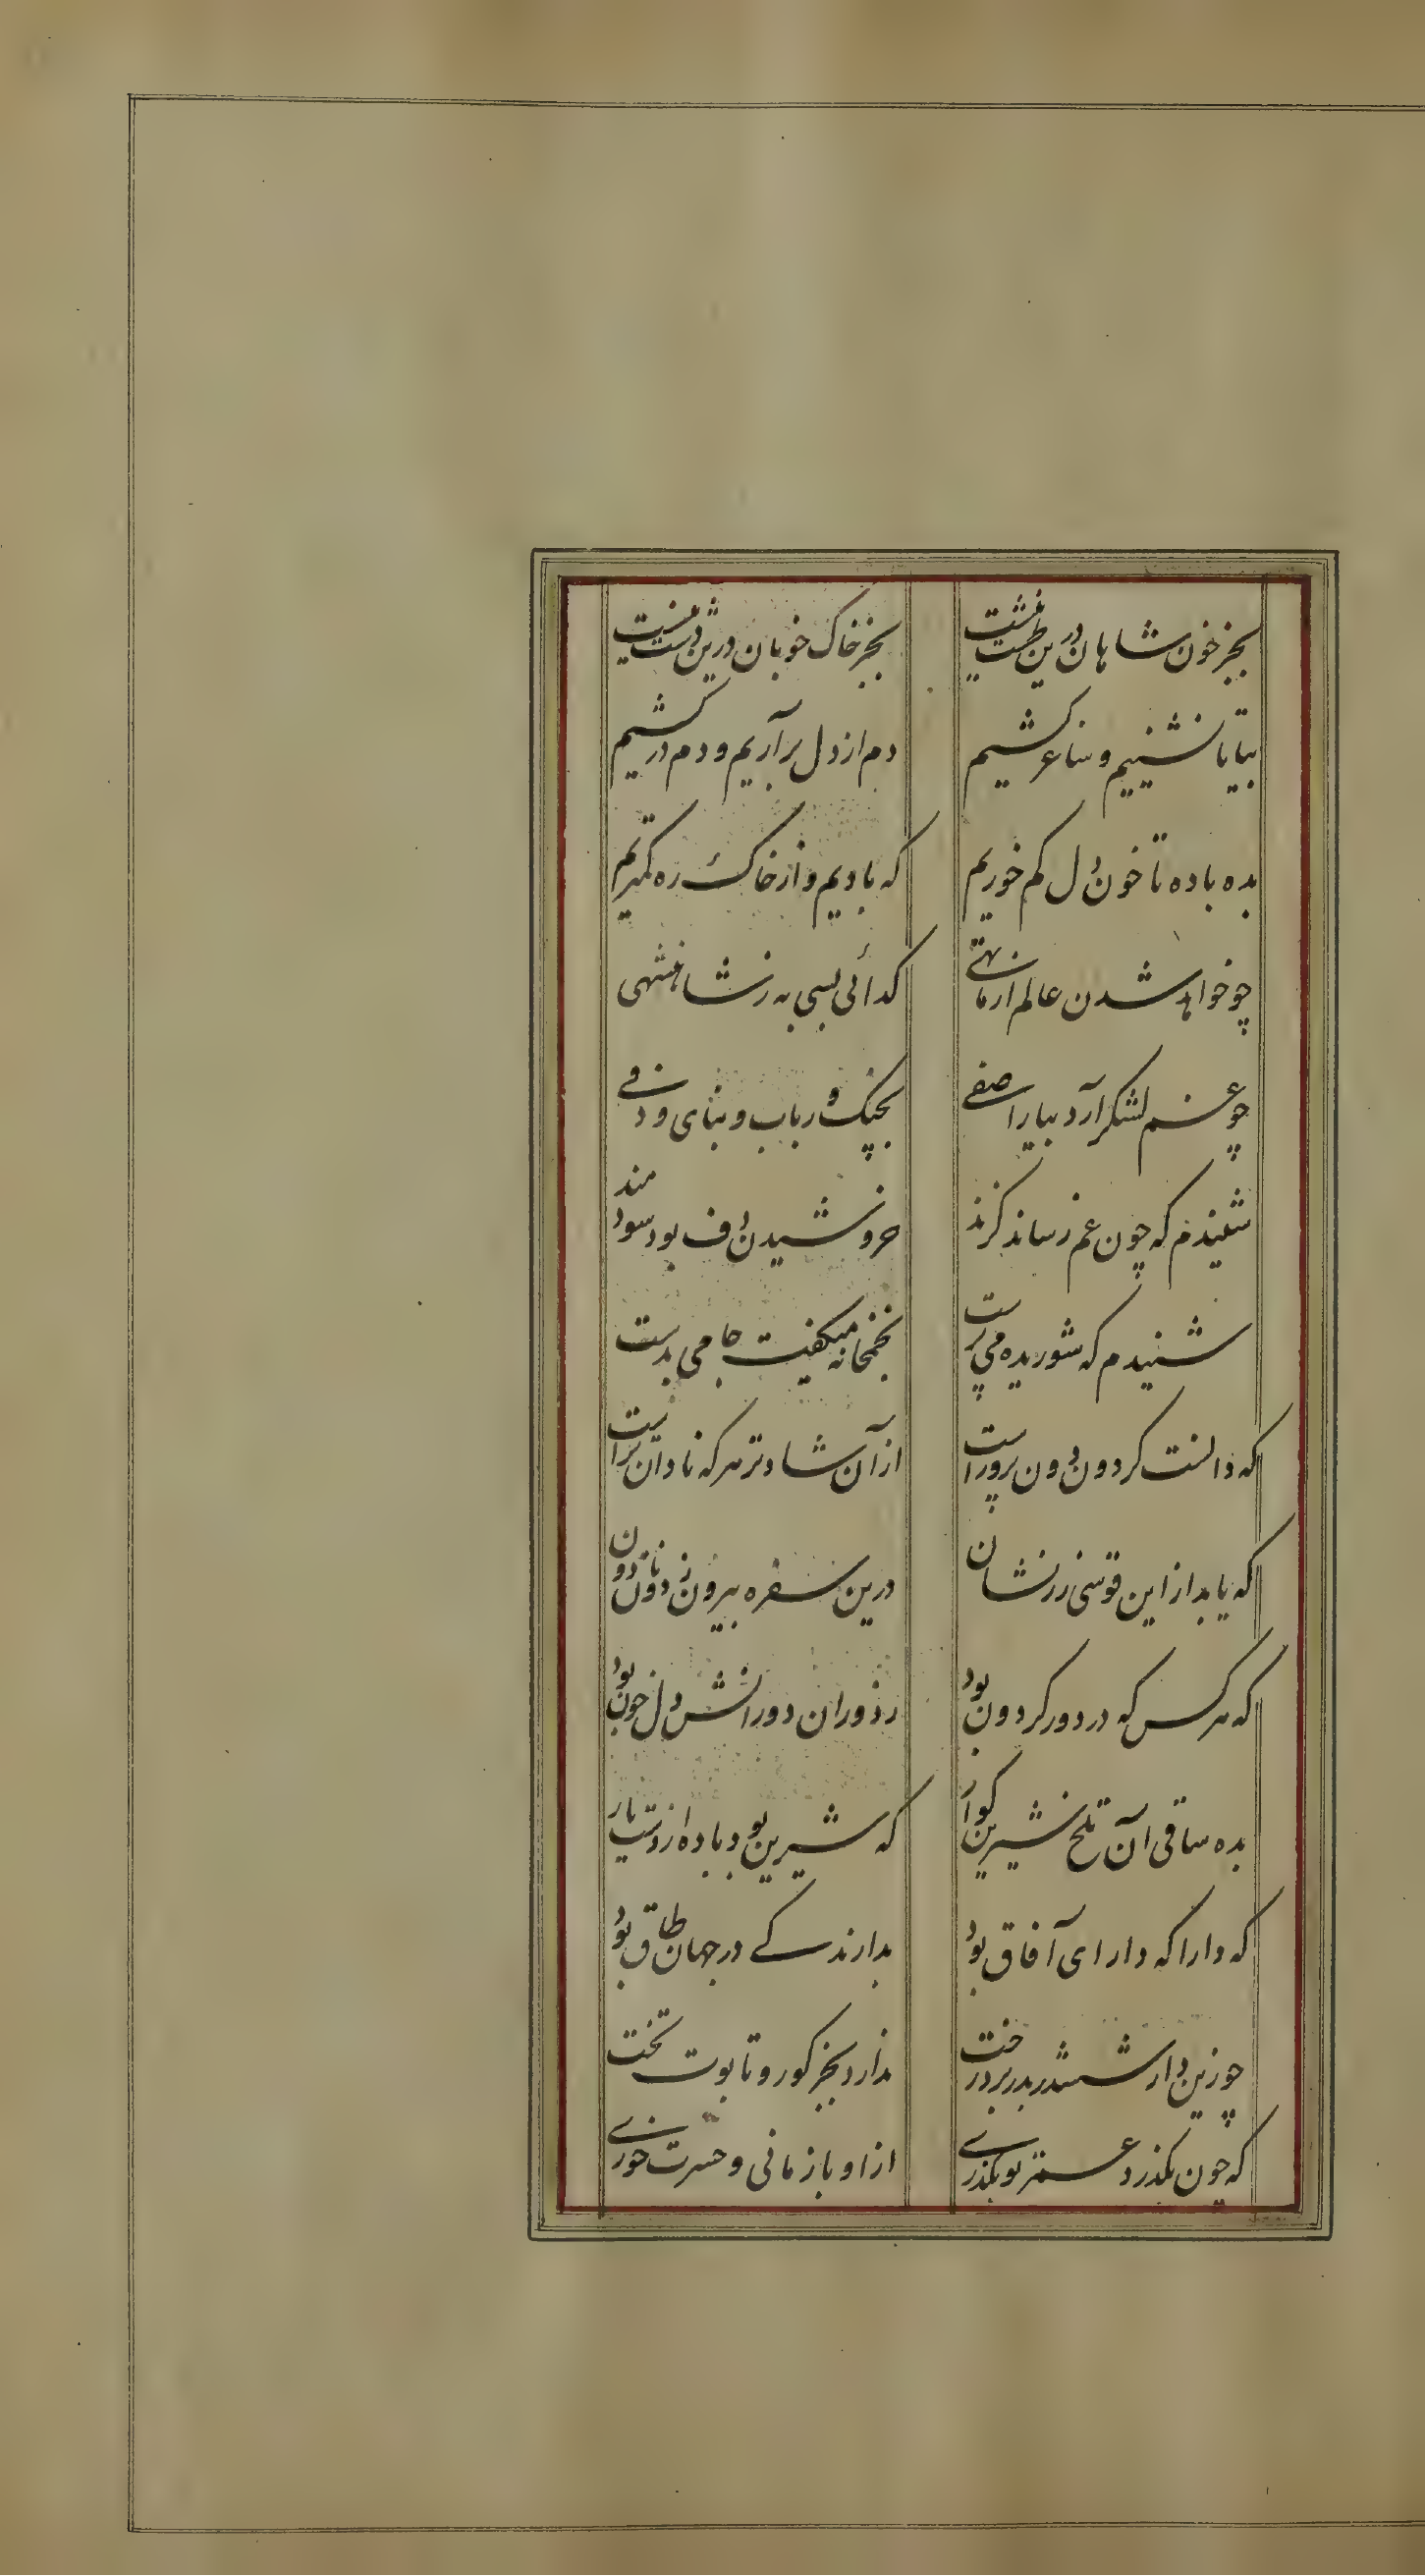 بجز خون شاهان درین طشت نیست بجز خاک خوبان درین دشت نیست
بیا تا نشینیم و ساغر کشیم دم از دل برآریم و دم درکشیم
بده باده تا خون دل کم خوریم که بادیم و از خاک ره کمتریم
چو خواهد شدن عالم از ما تهی گدائی بسی به ز شاهنشهی
چو غم لشکر آرد بیارا صفی بچنگ و رباب و بنای و دفی
شنیدم که چون غم رساند گزند خروشیدن دف بود سودمند
شنیدم که شوریده می پرست بخمخانه میگفت جامی بدست
که دانست گردون دون پرور است از آن شادتر هر که نادان تر است
که یابد ازین قوسی زرنشان درین سفره بیرون ز دونان دو نان
که هر کس که در دور گردون بود ز دوران دورانش دل خون بود
بده ساقی آن تلخ شیرین گوار که شیرین بود باده از دست یار
که دارا که دارای آفاق بود بدارندگی در جهان طاق بود
چو زین دار ششدر بدر برد رخت ندارد بجز گور و تابوت تخت
که چون بگذرد عمر تو بگذری ازو باز مانی و حسرت خوری